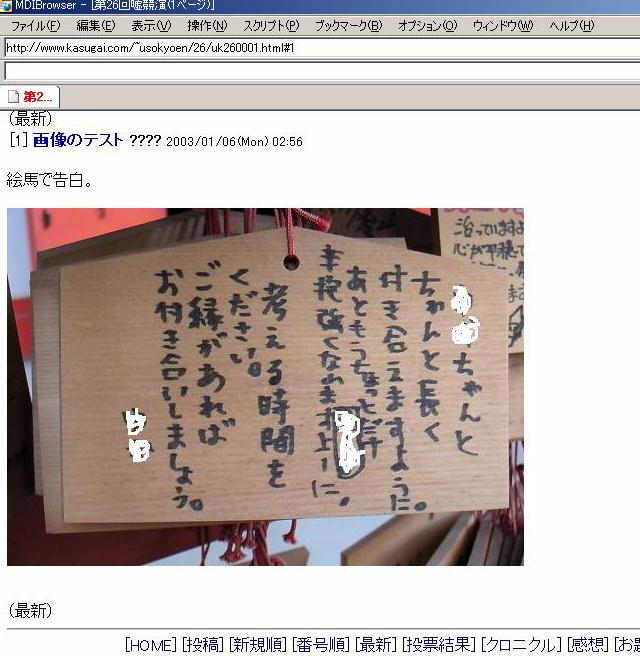 MDIBrowser - [第26回嘘競演(1ページ)]
ファイル(F) 編集(E) 表示(V) 操作(N) スクリプト(P) ブックマーク(B) オプション(O) ウィンドウ(W) ヘルプ(H)
http://www.kasugai.com/~usokyoen/26/uk260001.html#1
第2...
(最新)
[1] 画像のテスト ???? 2003/01/06(Mon) 02:56
絵馬で告白。
ちゃんと
ちゃんと長く
付き合えますように。
あともうちょっとだけ
辛抱強くなれますように。
考える時間を
ください。
ご縁があれば
お付き合いしましょう。
治っています
心が平穏で
(最新)
[HOME] [投稿] [新規順] [番号順] [最新] [投票結果] [クロニクル] [感想] [お